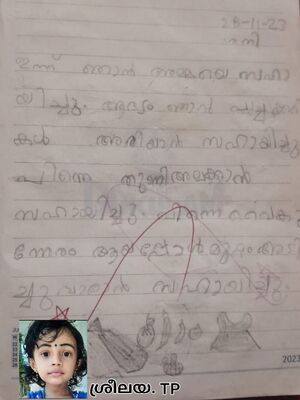 28-11-23
ശനി
ഇന്ന് ഞാൻ അമ്മയെ സഹാ
യിച്ചു. ആദ്യം ഞാൻ പച്ചക്കറി
കൾ അരിയാൻ സഹായിച്ചു
പിന്നെ തുണിഅലക്കാൻ
സഹായിച്ചു പിന്നെ വൈകു
ന്നേരം ആയപ്പോൾ മുറ്റം അടി
ച്ചുവാരാൻ സഹായിച്ചു.
2023
ശ്രീലയ. TP